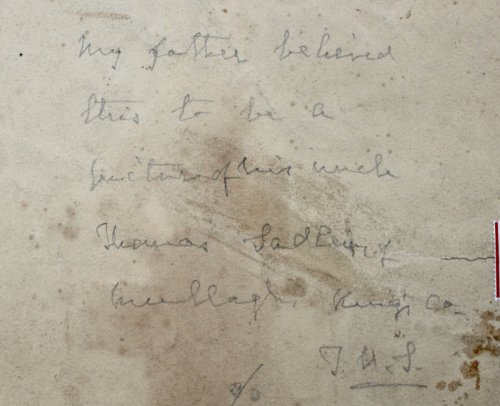 My father believed
this to be a
picture of his uncle
Thomas
King's Co.
T.H.S.